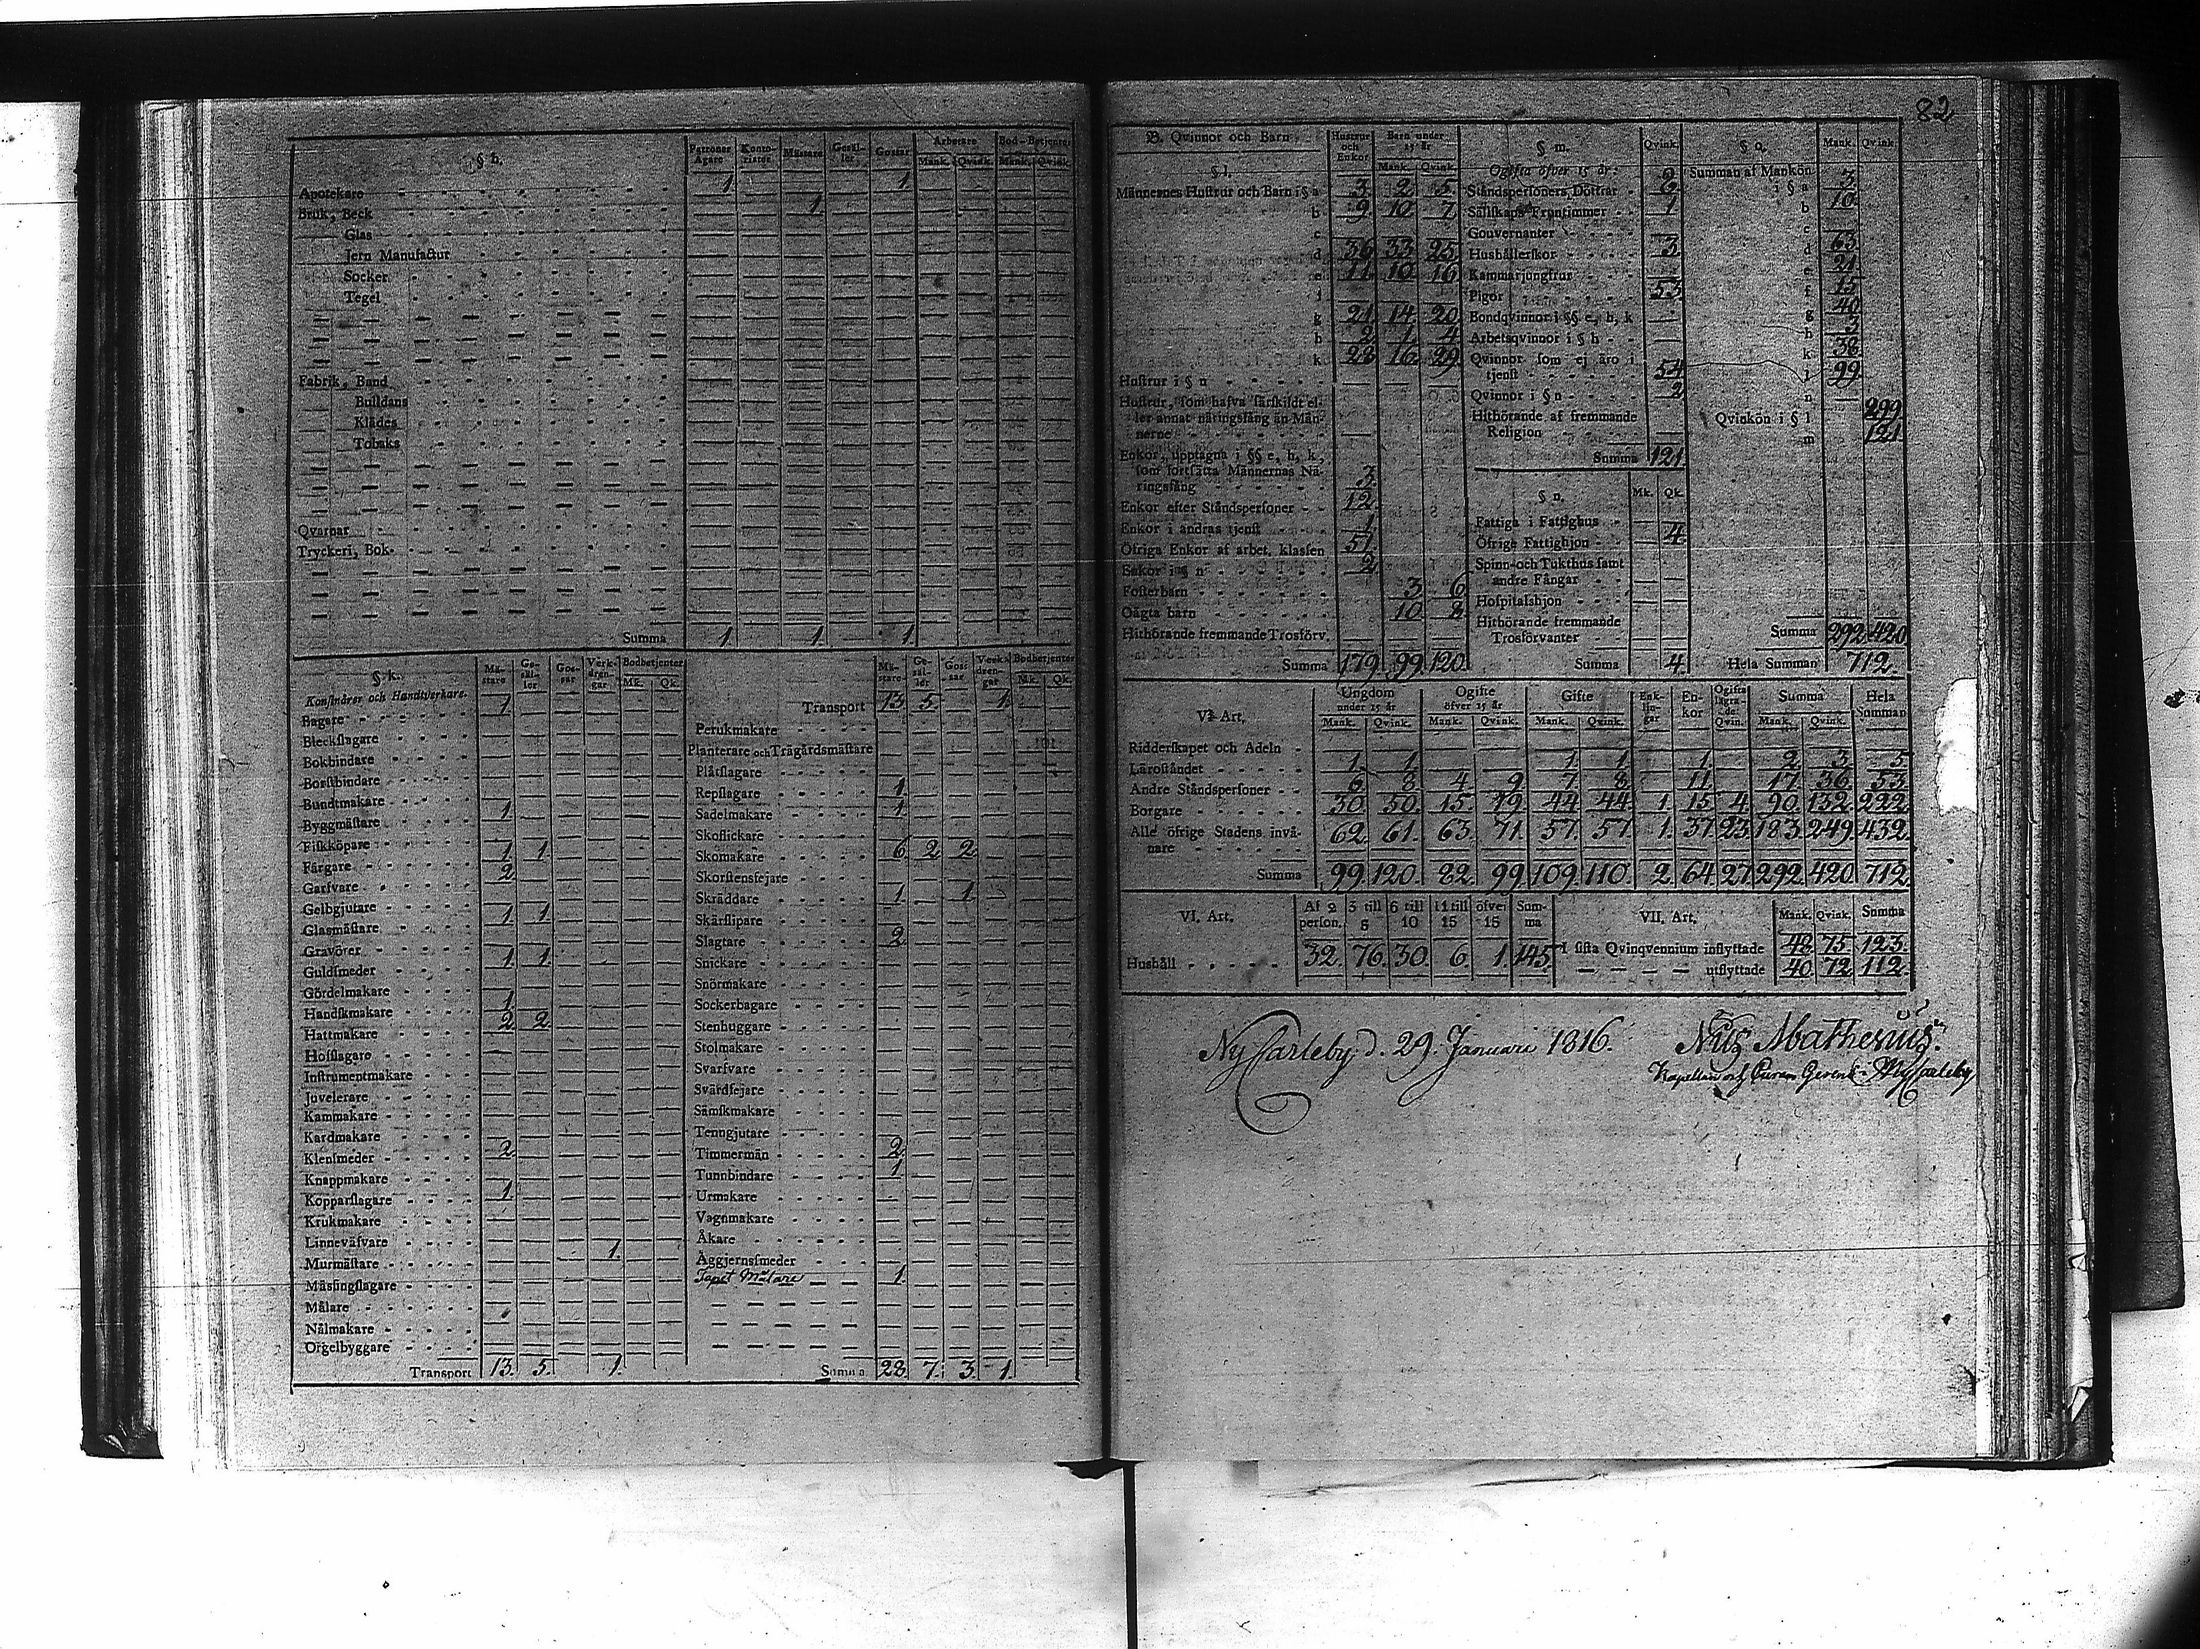 82
§ h.
Patroner Ägare
Konto-rister
Mästare
Gesäl-ler
Gossar
Arbetare
Mank. Qvink.
Bod-Betjenter
Mank. Qvink.
Apotekare 1 1
Bruk, Beck 1
Glas
Jern Manufactur
Socker
Tegel
Fabrik, Band
Bulldans
Klädes
Tobaks
Qvarnar
Tryckeri, Bok-
Summa 1 1 1
§ k.
Konstnärer och Handtverkare.
Mä-stare
Ge-säl-ler
Gos-sar
Verk-dren-gar
Bodbetjenter
Mk. Qk.
Bagare 1
Bleckslagare
Bokbindare
Borstbindare
Bundtmakare
Byggmästare 1
Fiskköpare
Färgare 1. 1.
Garfvare 2
Gelbgjutare
Glasmästare 1 1
Gravörer
Guldsmeder 1. 1.
Gördelmakare
Handskmakare 1
Hattmakare 2 2
Hofslagare
Instrumentmakare
Juvelerare
Kammakare
Kardmakare
Klensmeder 2
Knappmakare
Kopparslagare 1
Krukmakare
Linneväfvare
Murmästare 1.
Mässingslagare
Målare
Nålmakare
Orgelbyggare
Transport 13. 5. 1.
Mä-stare
Ge-säl-ler
Gos-sar
Verk-dren-gar
Bodbetjenter
Mk. Qk.
Transport 13. 5. 1.
Perukmakare
Planterare och Trägårdsmästare
Plåtslagare
Repslagare 1
Sadelmakare 1
Skoflickare
Skomakare 6 2 2
Skorstensfejare
Skräddare 1 1.
Skärslipare
Slagtare 2
Snickare
Snörmakare
Sockerbagare
Stenhuggare
Stolmakare
Svarfvare
Svärdfejare
Sämskmakare
Tenngjutare
Timmermän 2.
Tunnbindare 1
Urmakare
Vagnmakare
Åkare
Äggjernsmeder
Tapet Målare 1.
Summa 28. 7. 3. 1.
B. Qvinnor och Barn
Hustrur och Enkor
Barn under 15 år
Mank. Qvink.
§ l.
Männernes Hustrur och Barn i § a 3 2 5
b 9 10 7
c
d 36 33 25
e 11 10 16
f
g 21 14 20
h 2 1 4
k 28 16 29
Hustrur i § n
Hustrur, som hafva särskildt el-
ler annat näringsfång än Män-
nerne
Enkor, upptagna i §§ e, h, k,
som fortsätta Männernas Nä-
ringsfång 3.
Enkor efter Ståndspersoner 12
Enkor i andras tjenst 1
Öfriga Enkor af arbet. klassen 51
Enkor i § n 2
Fosterbarn 3 6
Oägta barn 10 8
Hithörande fremmande Trosförv.
Summa 179. 99. 120.
§ m. Qvink.
Ogifta öfver 15 år:
Ståndspersoners Döttrar
Sällskaps Fruntimmer 1
Gouvernanter
Hushållerskor 3
Kammarjungfrur
Pigor 53
Bondqvinnor i §§ e, h, k
Arbetsqvinnor i § h
Qvinnor som ej äro i
tjenst 54
Qvinnor i § n 2
Hithörande af fremmande
Religion
Summa 121
§ n. Mk. Qk.
Fattiga i Fattighus
Öfrige Fattighjon 4
Spinn- och Tukthus samt
andre Fångar
Hospitalshjon
Hithörande fremmande
Trosförvanter
Summa 4.
§ o. Mank. Qvink.
Summan af Mankön
i § a 3
b 10
c
d 63
e 21
f 15
g 40
h 3
k 38
l 99
n
Qvinkön i § l 299
m 121
Summa 292 420
Hela Summan 712.
V. Art.
Ungdom under 15 år
Mank. Qvink.
Ogifte öfver 15 år
Mank. Qvink.
Gifte
Mank. Qvink.
Enk-lin-gar
En-kor
Ogifta lägra-de Qvin.
Summa
Mank. Qvink.
Hela Summan
Ridderskapet och Adeln
Lärostånder 1 1 1 1 1 2 3 5
Andre Ståndspersoner 6 8 4 9 7 8 11. 17 36 53
Borgare 30 50 15 19 44 44 1 15 4 90 132 222
Alle öfrige Stadens invå-
nare 62 61. 63. 71. 57. 57. 1. 37. 23. 183. 249. 432.
Summa 99. 120. 82. 99. 109. 110. 2. 64. 27. 292. 420. 712.
VI. Art.
Af 2 person.
3 till 5
6 till 10
11 till 15
öfver 15
Sum-ma
Hushåll 32. 76. 30. 6. 1. 145.
VII. Art. Mank. Qvink. Summa
I sista Qvinqvennium inflyttade 48. 75. 123.
utflyttade 40. 72. 112.
Ny Carleby, d. 29. Januari 1816.
Nils Mathesius.
Kapellan och Curam Gerens Ny Carleby